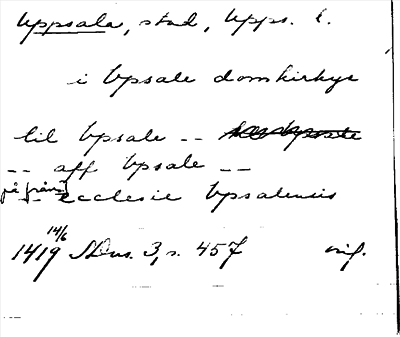 Uppsala, stad, Upps. l.
i Vpsale domkirkye
til Vpsale --
-- aff Vpsale --
på från
-- ecclesie Vpsalensis
14/6
1419 SDns. 3, s. 457 orig.